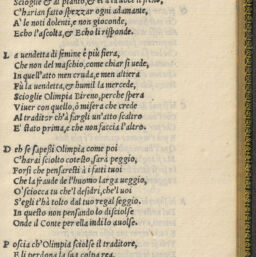 Scioglie & al pianto, &
C'harian fatto spezzar ogni adamante,
A' le noti dolenti, e non gioconde,
Echo l'ascolta, & Echo li risponde.
L a uendetta di femine è più fiera,
Che non del maschio, come chiar si uede,
In quell'atto men cruda, e men altiera
Fù la uendetta, & humil la mercede,
Scioglie Olimpia Bireno, perche spera
Viuer con quello, ò misera che crede
Al traditor ch'à fargli un'atto scaltro
E' stato prima, e che non faccia l'altro.
D eh se sapesti Olimpia come poi
C'harai sciolto costesto, sarà peggio,
Forsi che pensaresti à i fatti tuoi
Che la fraude de l'huomo larga ueggio,
O' sciocca tu che'l desidri, che'l uoi
S'egli t'hà tolto dal tuo regal seggio.
In questo non pensando lo disciolse
Onde il Conte per ella indi lo auolse.
P oscia ch'Olimpia sciolse il traditore,
E li perdona la sua colpa rea.